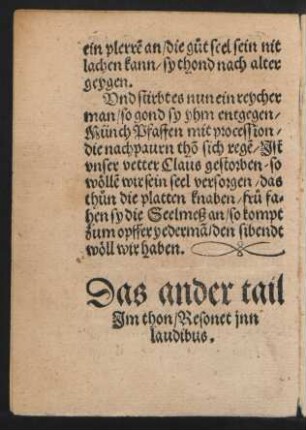 ein plerrē an/die gůt seel sein nit
lachen kann/sy thond nach alter
geygen.
Vnd stirbt es nun ein reycher
man/so gond sy yhm entgegen/
Münch Pfaffen mit procession/
die nachpaurn thō sich regē/Jst
vnser vetter Claus gestorben/so
wöllē wir sein seel versorgen/das
thůn die platten knaben/frů fa-
hen sy die Seelmeß an/so kompt
zum opffer yedermā/den sibendt
wöll wir haben.
Das ander tail
Jm thon/Resonet jnn
laudibus.